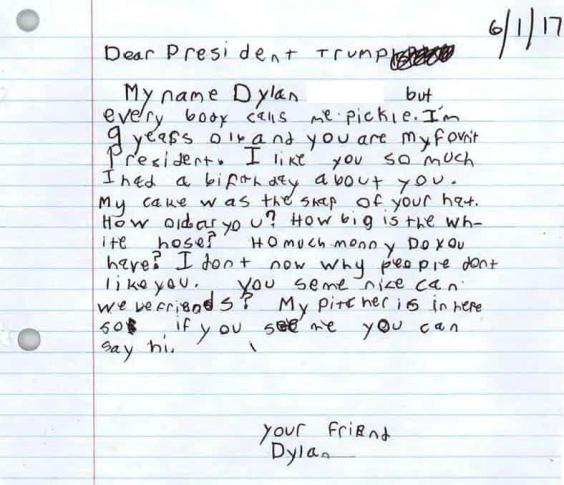 6/1/17
Dear President Trump
My name Dylan but
every body calls me pickle. I'm
9 years old and you are my fovrit
President. I like you so much
I had a birthday about you.
My cake was the shap of your hat.
How old ar you? How big is the wh-
ite hose? Ho much monny Do you
have? I dont now why people dont
like you. you seme nice can
we be friends? My pitcher is in here
so if you see me you can
say hi.
your friend
Dylan